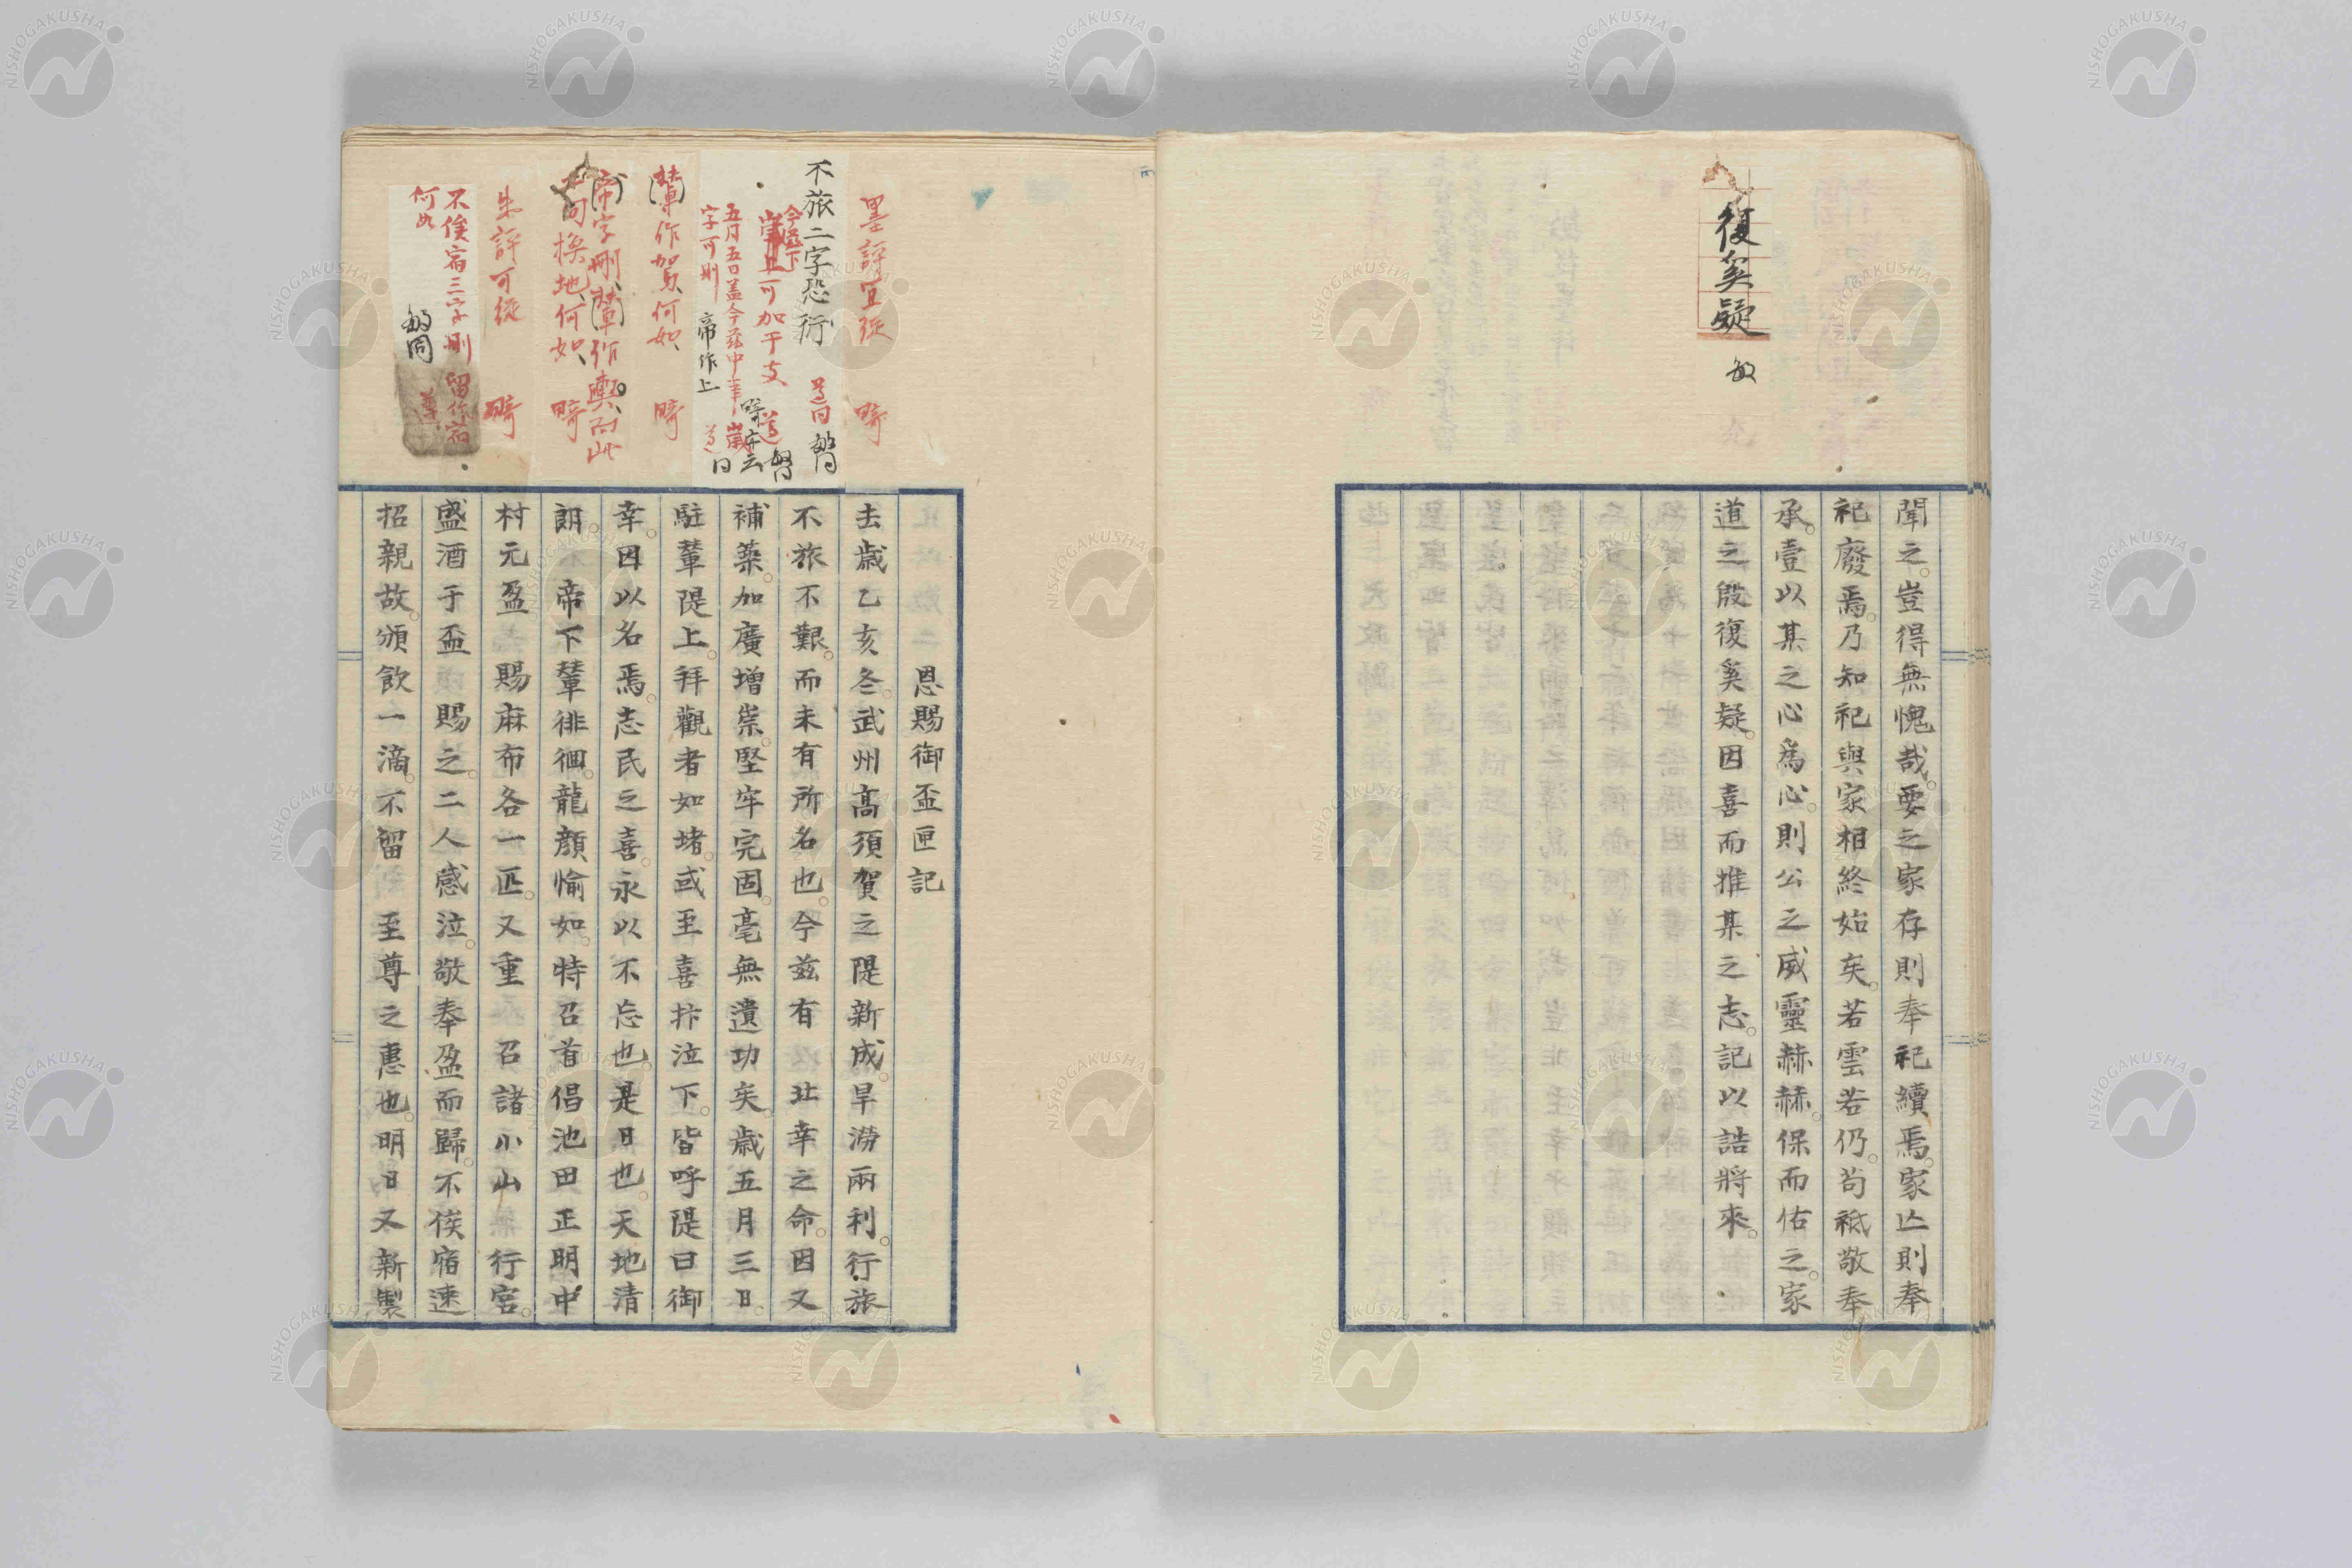 復奚疑
敏
聞之豈得無愧哉要之家存則奉祀續焉家亾則奉
祀廢焉乃知祀與家相終始矣若雲若仍苟祗敬奉
承壹以某之心為心則公之威靈赫赫保而佑之家
道之殷復奚疑因喜而推某之志記以誥將來
墨評宜從 畸
不旅二字恐衍 道同 敏同
今茲下
歲上可加干支 道 敏同
五月五日蓋今茲中
字可刪 帝作上
輦作駕何如 畸
帝字刪輦作輿而此
句換地何如 畸
朱評可從 畸
不俟宿三字刪 留作宿
何如 敏同 尊
恩賜御盃匣記
去歲乙亥冬武州高須賀之隄新成旱澇兩利行旅
不旅不艱而未有所名也今茲有 北幸之命因又
補築加廣增崇堅牢完固毫無遺功矣歲五月三日
駐輦隄上拜觀者如堵或至喜抃泣下皆呼隄曰御
幸因以名焉志民之喜永以不忘也是日也天地清
朗 帝下輦徘徊龍顏愉如特召首倡池田正明中
村元盈 賜麻布各一匹又重 召諸小山 行宮
盛酒于盃 賜之二人感泣敬奉盈而歸不俟宿速
招親故頒飲一滴不留 至尊之惠也明日又新製